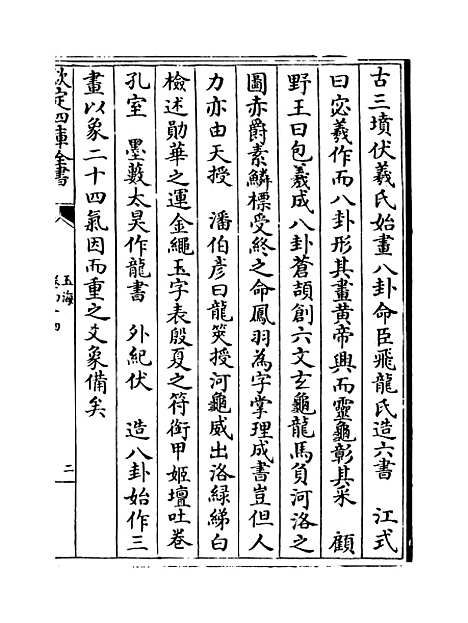 古三墳伏羲氏始畫八卦命臣飛龍氏造六書　江式
曰宓羲作而八卦形其畫黄帝興而靈龜彰其采　顧
野王曰包羲成八卦蒼頡創六文玄龜龍馬負河洛之
圖赤爵素鱗標受終之命鳳羽為字掌理成書豈但人
力亦由天授　潘伯彦曰龍筴授河龜威出洛緑綈白
檢述勛華之運金繩玉字表殷夏之符銜甲姬壇吐卷
孔室　墨藪太昊作龍書　外紀伏　造八卦始作三
畫以象二十四氣因而重之爻象備矣
欽定四庫全書
玉海
卷四十四
二